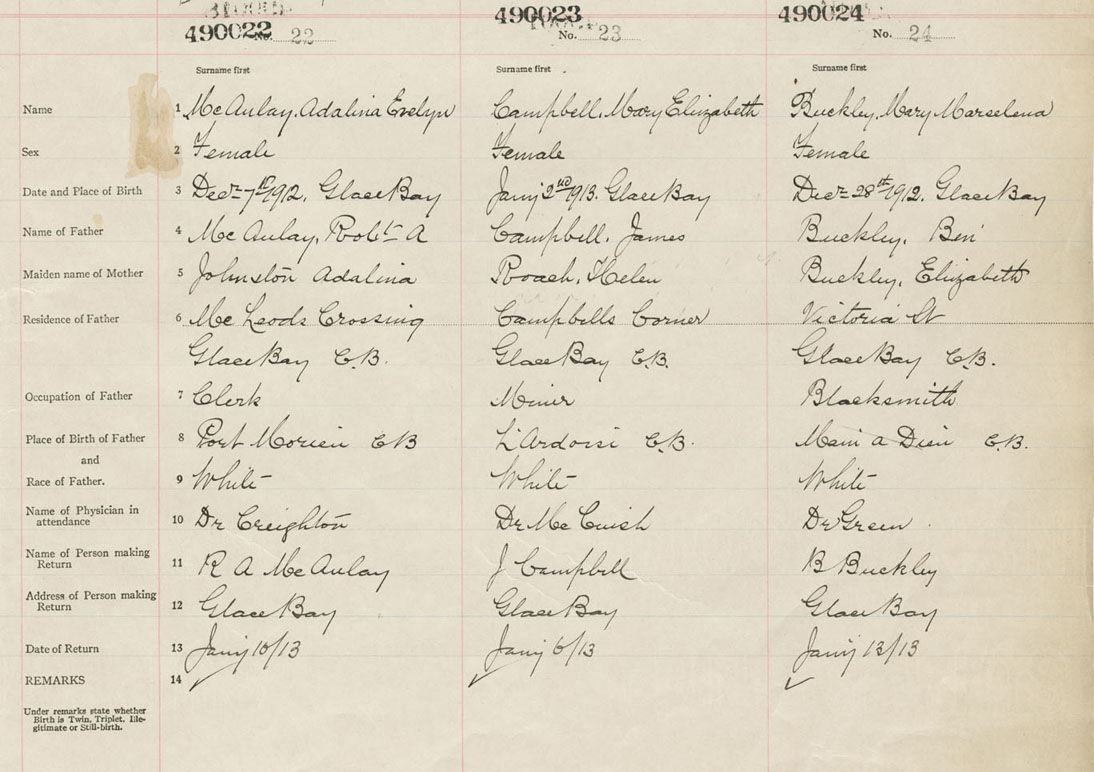 490022 490023 490024
No. 22 No. 23 No. 24
Surname first Surname first Surname first
Name 1 McAulay, Adalina Evelyn Campbell, Mary Elizabeth Buckley, Mary Marselena
Sex 2 Female Female Female
Date and Place of Birth 3 Decr 7th 1912. Glace Bay Jany 2nd 1913. Glace Bay Decr 28th 1912. Glace Bay
Name of Father 4 McAulay, Robt A Campbell, James Buckley, Ben
Maiden name of Mother 5 Johnston Adalina Roach, Helen Buckley, Elizabeth
Residence of Father 6 McLeods Crossing Campbells Corner Victoria St
Glace Bay C.B. Glace Bay C.B. Glace Bay C.B.
Occupation of Father 7 Clerk Miner Blacksmith
Place of Birth of Father 8 Port Morien CB L'Ardoise C.B. Main a Dieu C.B.
and
Race of Father. 9 White White White
Name of Physician in
attendance 10 Dr Creighton Dr McCuish Dr Green
Name of Person making
Return 11 R A McAulay J Campbell B Buckley
Address of Person making
Return 12 Glace Bay Glace Bay Glace Bay
Date of Return 13 Jany 10/13 Jany 6/13 Jany 13/13
REMARKS 14
Under remarks state whether
Birth is Twin, Triplet, Ille-
gitimate or Still-birth.